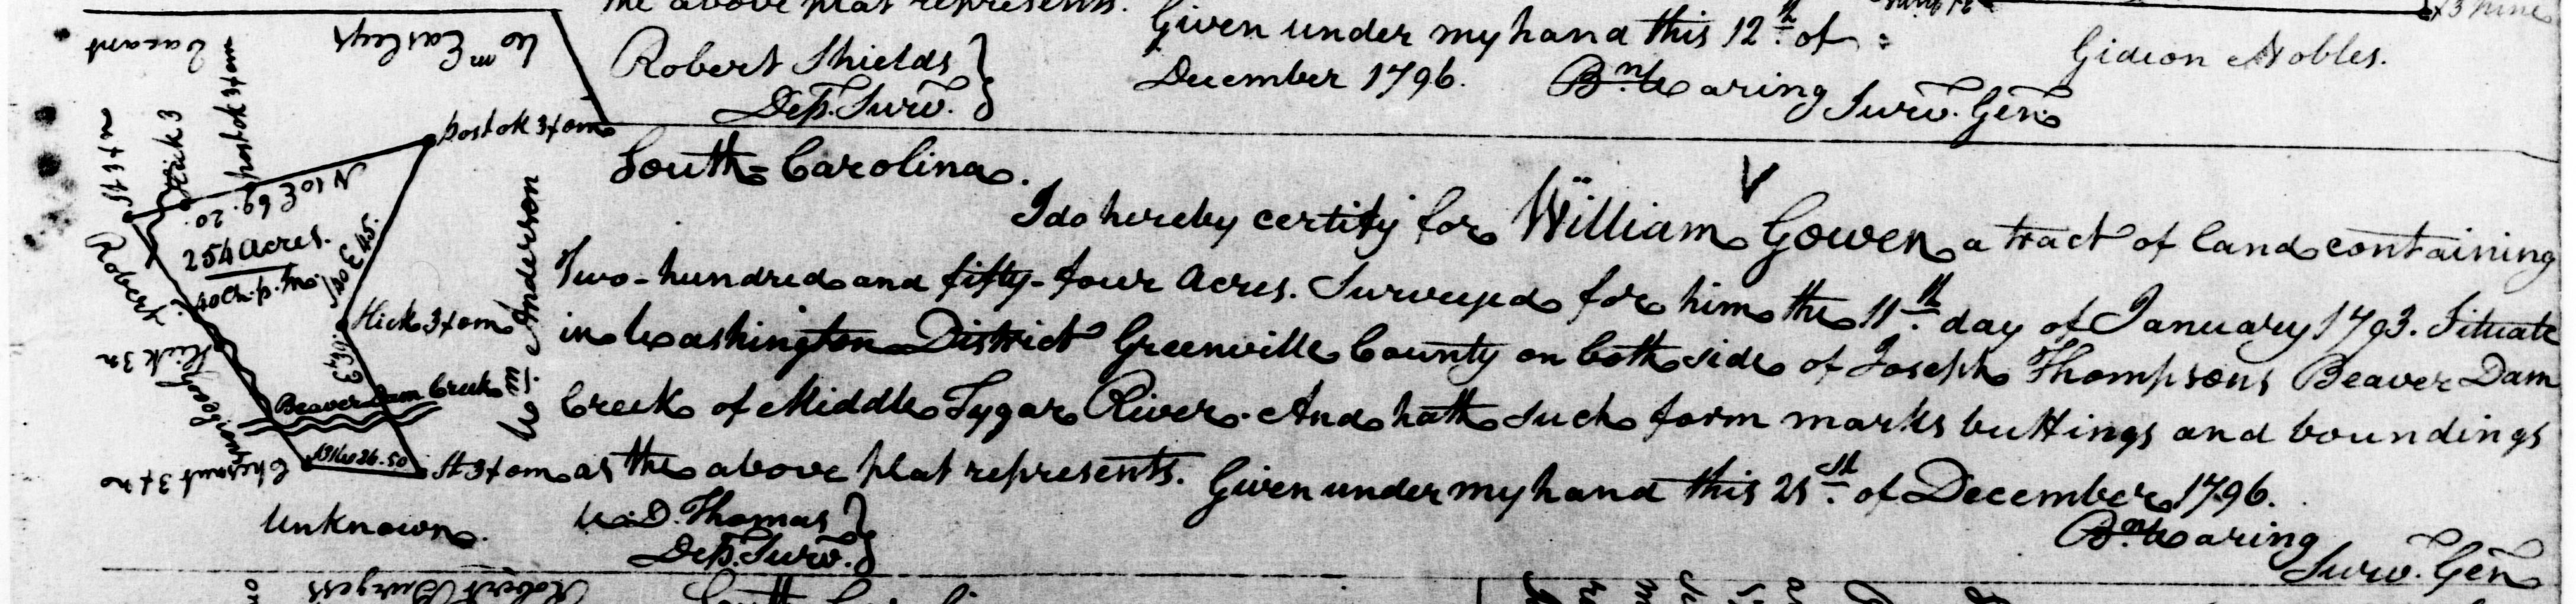 the above plat represents. Given under my hand this 12th of
December 1796.
Robert Shields
Dep. Surv.
Bn. Waring
Surv. Gen.
x3 pine
Gideon Nobles.
Vacant
Wm Easleys
St 3x n
Hick 3
post ok 3x om
post ok 3x om
N 10 E 69.20.
254 Acres.
40 Ch. p. In.
Hick 3x om
Wm. Anderson
Robert
Hick 3 n
Beaver Dam Creek
26.50
St 3x om
Chesnut 3x no
Unknown.
South-Carolina.
I do hereby certify for William Gowen a tract of land containing
Two-hundred and fifty-four Acres. Surveyed for him the 11th day of January 1793. Situate
in Washington District Greenville County on both side of Joseph Thompsons Beaver Dam
Creek of Middle Tygar River. And hath such form marks buttings and boundings
as the above plat represents. Given under my hand this 21st of December 1796.
W. D. Thomas
Dep. Surv.
Bn. Waring
Surv. Gen
Robert Burgess